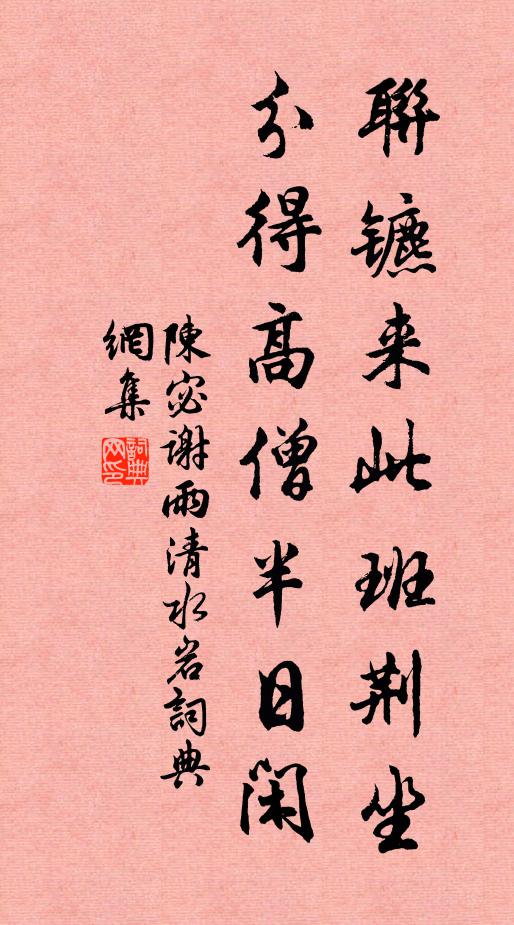 聯镳来此班荆坐
分得高僧半日閑
陳宓謝雨清水岩詞典
網集
詞典
网印